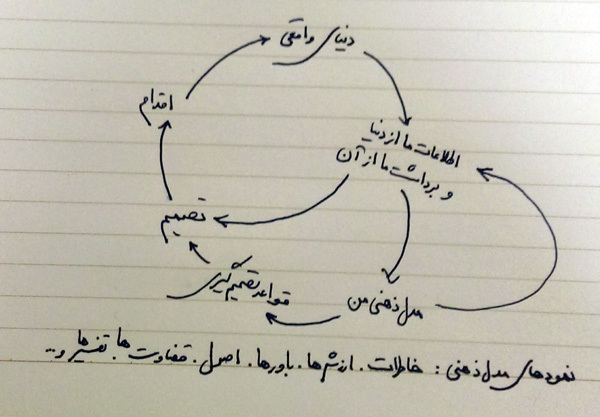 دنیای واقعی
اقدام
اطلاعات ما از دنیا
و برداشت ما از آن
تصمیم
قواعد تصمیم گیری
مدل ذهنی من
نمودهای مدل ذهنی: خاطرات. ارزش‌ها. باورها. اصول. قضاوت‌ها. تفسیرها و...